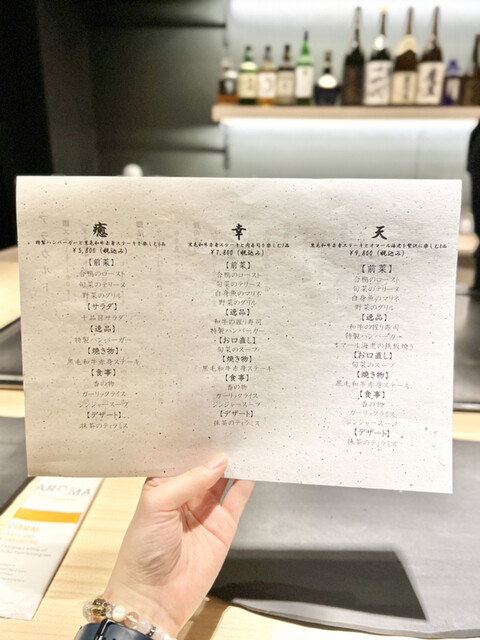 癒
特製ハンバーガーと黒毛和牛赤身ステーキを愉しむ6品
¥5,800（税込み）
【前菜】
合鴨のロースト
旬菜のテリーヌ
野菜のグリル
【サラダ】
十品目サラダ
【逸品】
特製ハンバーガー
【焼き物】
黒毛和牛赤身ステーキ
【食事】
香の物
ガーリックライス
ジンジャースープ
【デザート】
抹茶のティラミス
幸
¥7,800（税込み）
【前菜】
合鴨のロースト
旬菜のテリーヌ
白身魚のマリネ
野菜のグリル
【逸品】
和牛の握り寿司
特製ハンバーガー
【お口直し】
旬菜のスープ
【焼き物】
黒毛和牛赤身ステーキ
【食事】
香の物
ガーリックライス
ジンジャースープ
【デザート】
抹茶のティラミス
天
黒毛和牛赤身ステーキとオマール海老を贅沢に愉しむ7品
¥9,800（税込み）
【前菜】
合鴨のロースト
旬菜のテリーヌ
白身魚のマリネ
野菜のグリル
【逸品】
和牛の握り寿司
特製ハンバーガー
オマール海老の鉄板焼き
【お口直し】
旬菜のスープ
【焼き物】
黒毛和牛赤身ステーキ
【食事】
香の物
ガーリックライス
ジンジャースープ
【デザート】
抹茶のティラミス
AROMA
CITRUS